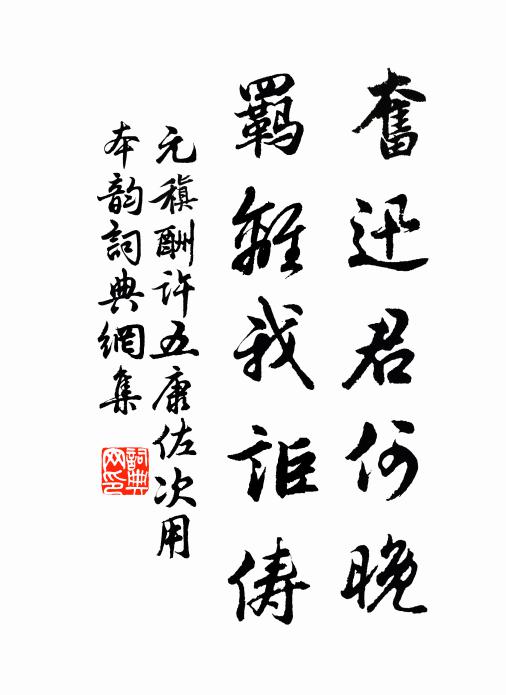 奮迅君何晚
羈離我詎儔
元稹酬許五康佐次用
本韵詞典網集
詞典网印